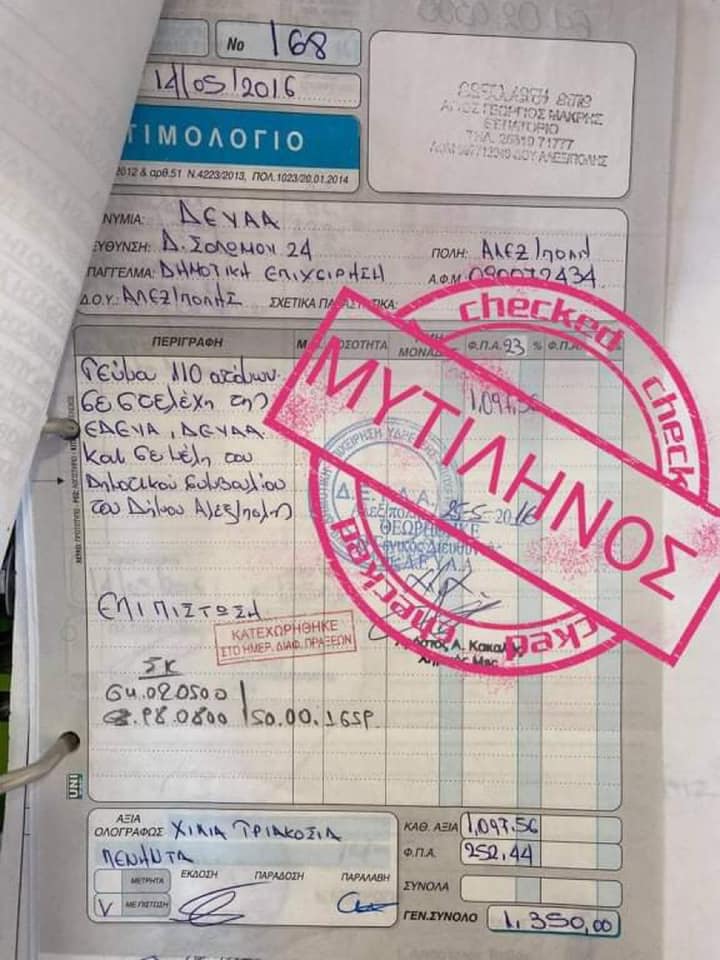 No 168
14/05/2016
ΤΙΜΟΛΟΓΙΟ
2012 & αρθ.51 Ν.4223/2013, ΠΟΛ.1023/20.01.2014
ΑΓΙΟΣ ΓΕΩΡΓΙΟΣ ΜΑΚΡΗΣ
ΕΣΤΙΑΤΟΡΙΟ
ΤΗΛ. 25510 71777
ΔΟΥ ΑΛΕΞ/ΠΟΛΗΣ
ΝΥΜΙΑ: ΔΕΥΑΑ
ΕΥΘΥΝΣΗ: Δ. ΣΟΛΩΜΟΥ 24
ΠΟΛΗ: ΑΛΕΞ/ΠΟΛΗ
ΠΑΓΓΕΛΜΑ: ΔΗΜΟΤΙΚΗ ΕΠΙΧΕΙΡΗΣΗ
Α.Φ.Μ. 090072434
Δ.Ο.Υ.: ΑΛΕΞ/ΠΟΛΗΣ ΣΧΕΤΙΚΑ
ΠΕΡΙΓΡΑΦΗ ΜΟΝΑΔ Φ.Π.Α. 23 % Φ.Π.Α.
Γεύμα 110 ατόμων
σε στελέχη της
ΕΔΕΥΑ, ΔΕΥΑΑ
και σε μέλη του
Δημοτικού Συμβουλίου
του Δήμου Αλεξ/πολης
1,097,56
checked
check
ΜΥΤΙΛΗΝΟΣ
checked
checked
Δ.Ε.Υ.Α.Α.
Αλεξ/πολη 25-5-2016
ΘΕΩΡΗΘΗΚΕ
ΕΠΙ ΠΙΣΤΩΣΗ
ΚΑΤΕΧΩΡΗΘΗΚΕ
ΣΤΟ ΗΜΕΡ. ΔΙΑΦ. ΠΡΑΞΕΩΝ
ΣΚ
64.020500
98.0800 50.00.165P.
UNI
ΑΞΙΑ
ΟΛΟΓΡΑΦΩΣ ΧΙΛΙΑ ΤΡΙΑΚΟΣΙΑ
ΠΕΝΗΝΤΑ
ΚΑΘ. ΑΞΙΑ 1,097.56
Φ.Π.Α. 252,44
ΜΕΤΡΗΤΑ ΕΚΔΟΣΗ ΠΑΡΑΔΟΣΗ ΠΑΡΑΛΑΒΗ
V ΜΕ ΠΙΣΤΩΣΗ
ΣΥΝΟΛΑ
ΓΕΝ.ΣΥΝΟΛΟ 1.350,00